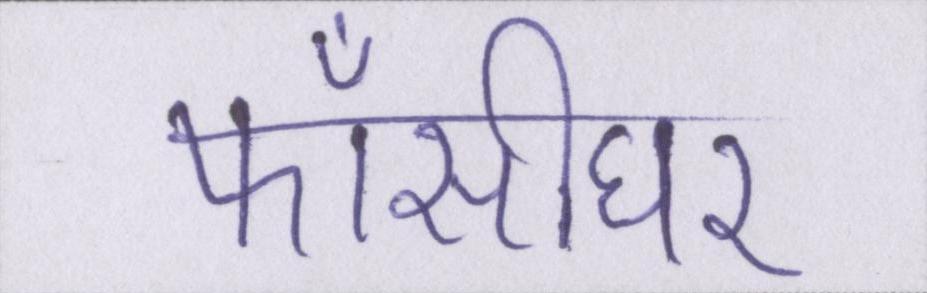 फाँसीघर